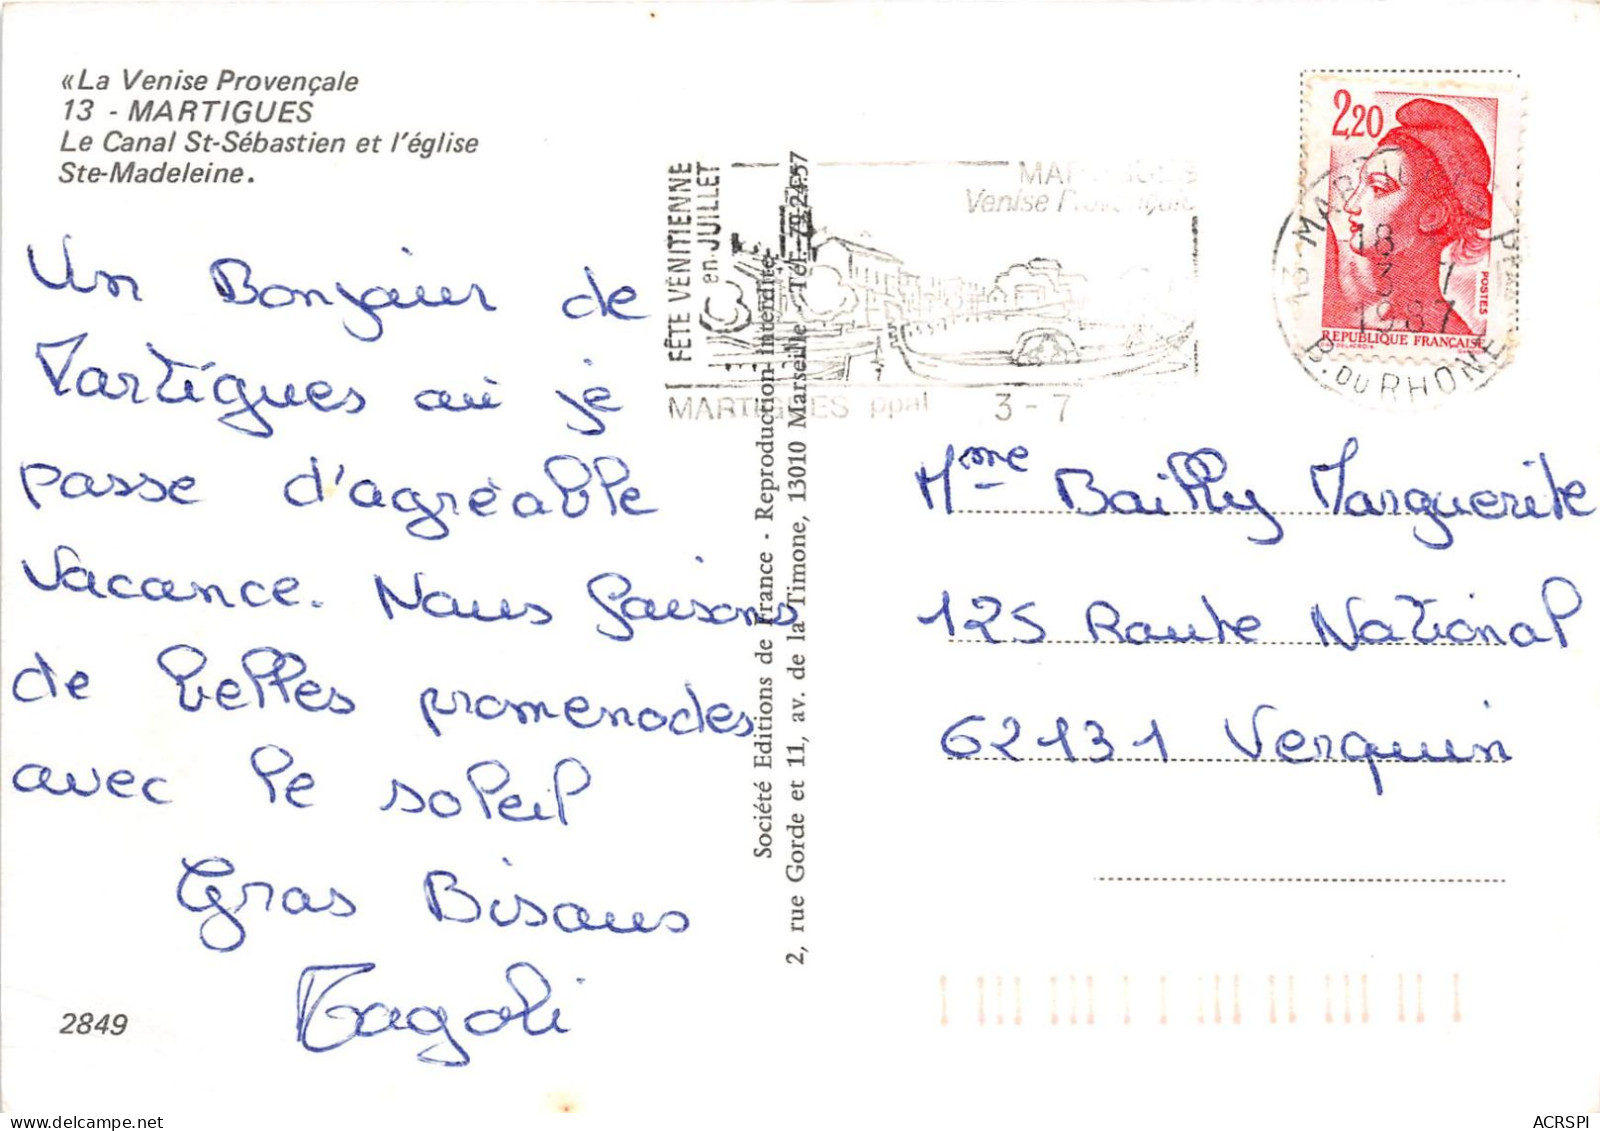 «La Venise Provençale
13 - MARTIGUES
Le Canal St-Sébastien et l'église
Ste-Madeleine.
Un Bonjour de
Martigues où je
passe d'agréable
vacance. Nous faisons
de belles promenades
avec le soleil
Gros Bisous
Magali
2849
Société Editions de France - Reproduction interdite
2, rue Gorde et 11, av. de la Timone, 13010 Marseille - Tél. 79-24-57
FÊTE VÉNITIENNE
en JUILLET
Venise Provençale
MARTIGUES ppal 3 - 7
2,20
POSTES
REPUBLIQUE FRANÇAISE
13 MARTIGUES PPAL
18 H
3 - 7
1987
B. DU RHONE
Mme Bailly Marguerite
125 Route National
62131 Verquin
ACRSPI